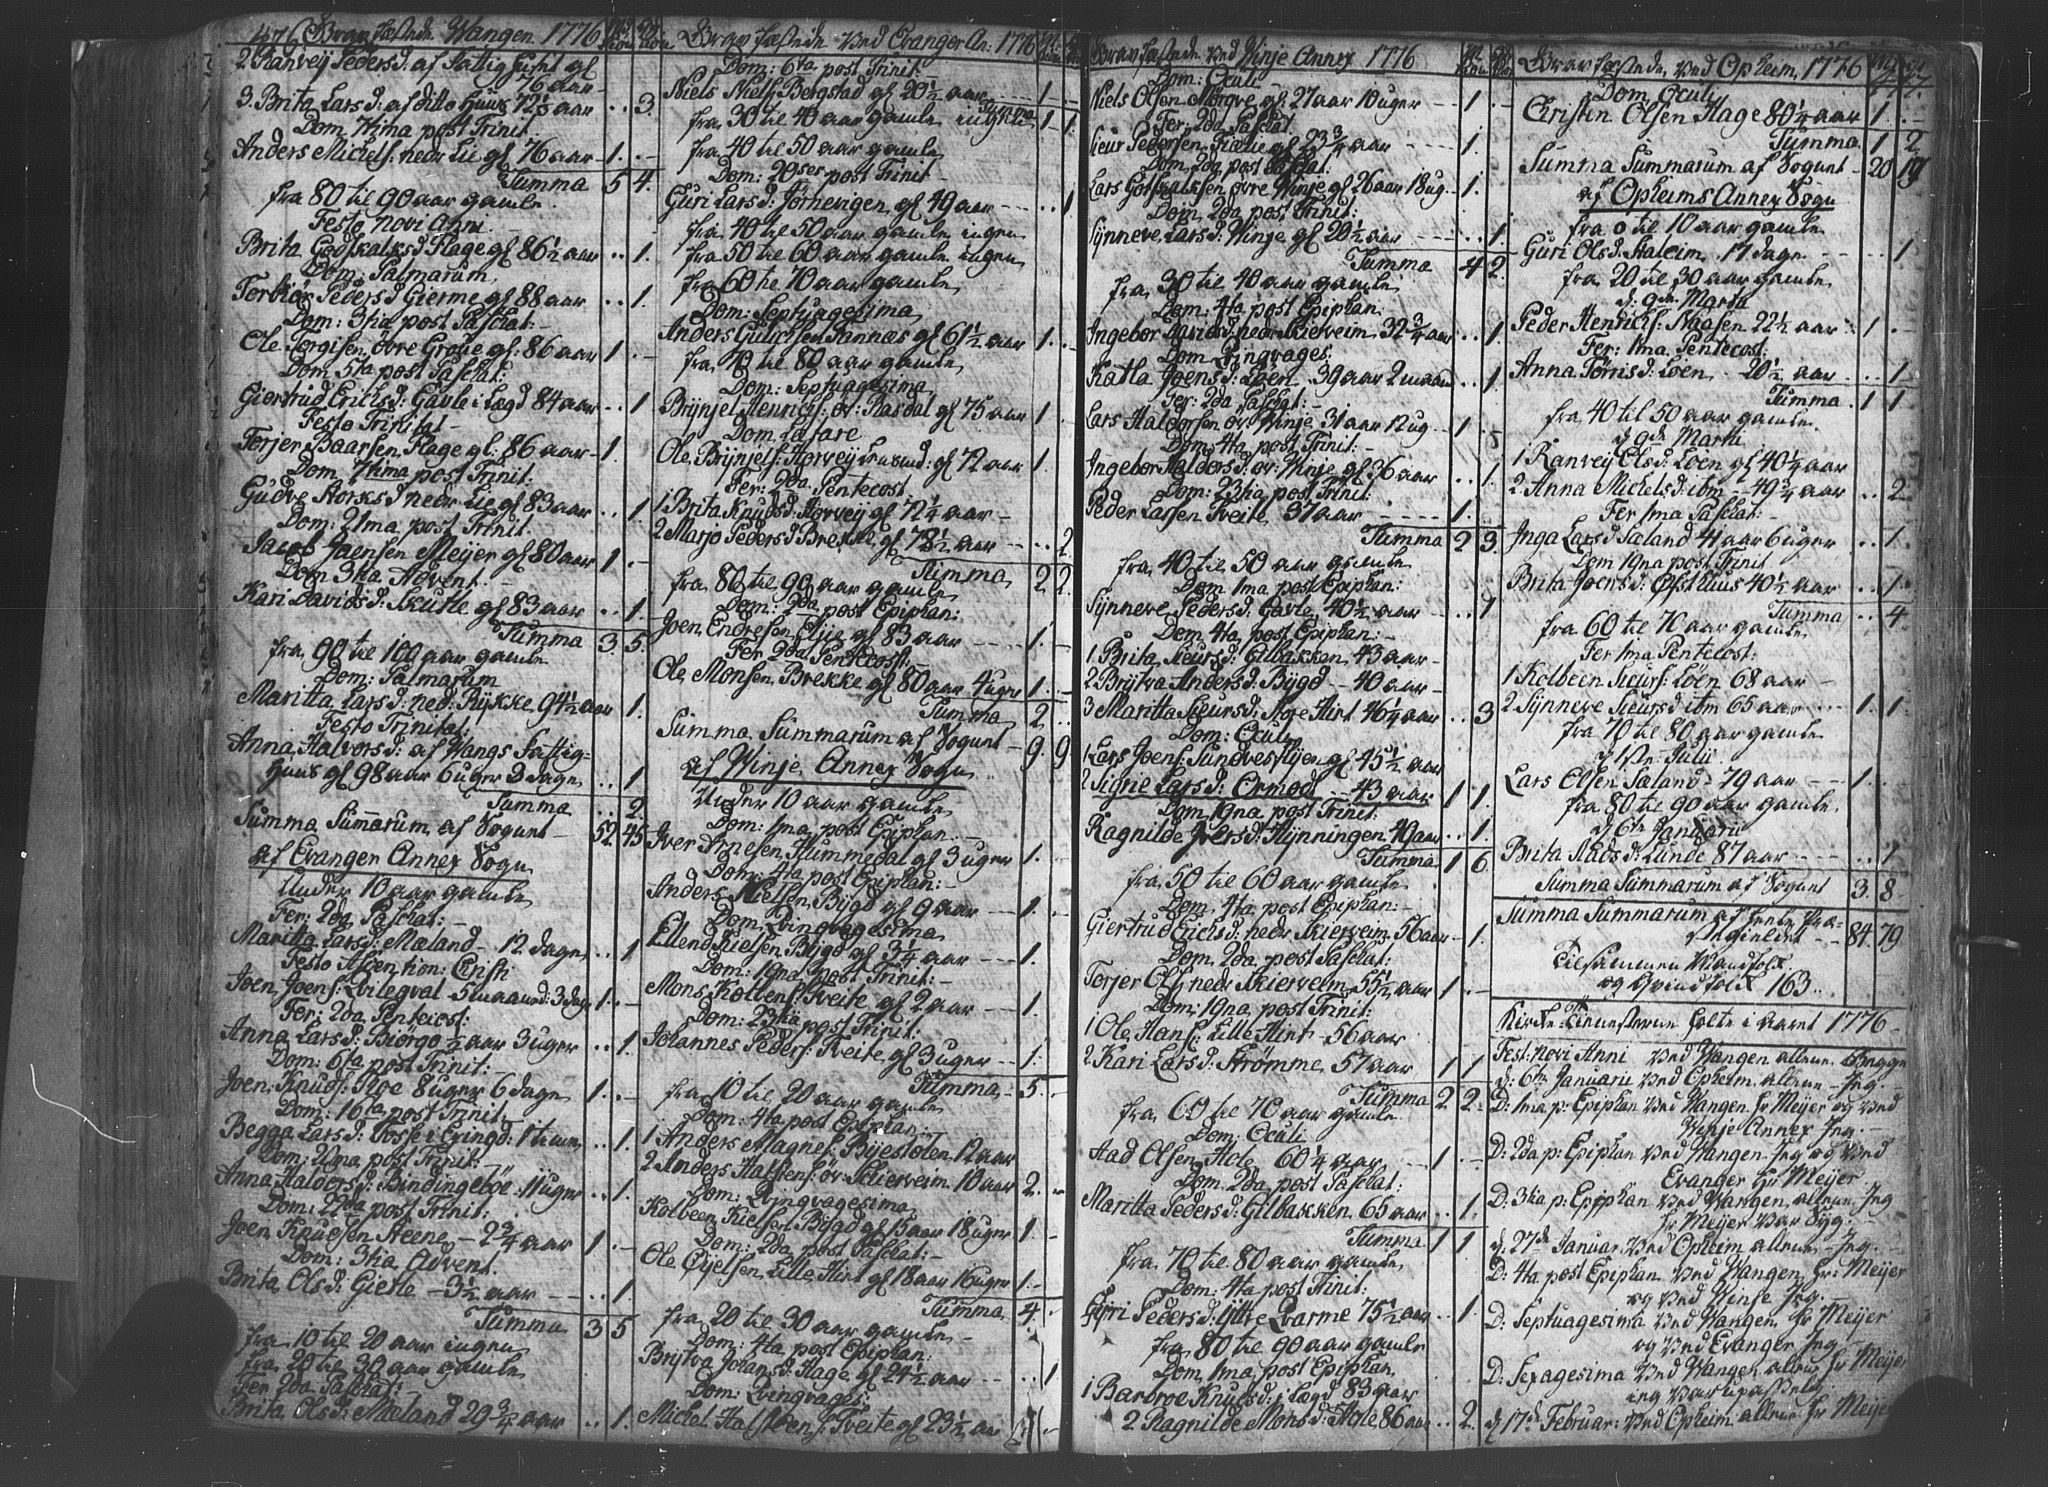 476 Gravfæstede Wangen 1776
2 Ranvey Peders d: af Fattig huset gl
76 aar
3. Brita Lars d: af ditto Huus 72 1/2 aar .. 3.
Dom. 7tima post Trinit.
Anders Michels: nedr Lie gl 76 aar 1. .
Summa 5 4.
fra 80 til 90 aar gamle
Festo Novi Anni
Brita Godskalks d Flage gl 86 1/2 aar .. 1.
Dom: Palmarum
Torbiør Peders d Gierme gl 88 aar .. 1.
Dom: 3tia post Paschat:
Ole Torgisen øvre Grove gl: 86 aar 1 .
Dom 5ta post Paschat:
Giertrud Erichs d: Gavle i Lægd 84 aar .. 1
Festo Trinitat
Torjer Baarsen Flage gl: 86 aar 1.
Dom 7tima post Trinit:
Gudve Storks d nedr Lie gl 83 aar .. 1.
Dom: 21ma post Trinit.
Jacob Joensen Meyer gl 80 aar 1 .
Dom 3tia Advent.
Kari Davids d: Skutle gl 83 aar .. 1.
Summa 3. 5.
fra 90 til 100 aar gamle
Dom: Palmarum
Maritta Lars d: ned: Rykke 94 1/2 aar 1.
Festo Trinitat:
Anna Halvors d: af Vangs Fattig-
Huus gl 98 aar 6 uger 3 dage .. 1
Summa .. 2.
Summa Summarum af Sognet 52 45
af Evanger Annex Sogn
Under 10 aar gamle
Fer: 2da Paschat:
Maritta Lars d: Mæland - 12 dage .. 1
Festo Ascention: Christi
Joen Joens: Qvilegval 5 maaned: 3 dag 1. .
Fer: 2da Pentecost:
Anna Lars d: Biørgo 1/2 aar 3 uger .. 1.
Dom: 6ta post Trinit:
Joen Knuds: Roe 8 uger 6 dage 1.
Dom: 16ta post Trinit.
Begga Lars d: Fosse i Exingd: 1 time .. 1.
Dom: 21ma post Trinit:
Anna Halvors d: Bindingebøe 11 uger .. 1.
Dom: 22da post Trinit:
Joen Knudsen Steene 2 3/4 aar 1. .
Dom: 3tia Advent.
Brita Ols d: Gietle 3 1/2 aar 1.
Summa 3 5
fra 10 til 20 aar ingen
fra 20 til 30 aar gamle
Fer 2da Paschat:
Brita Ols d: Mæland 29 3/4 aar .. 1.
Gravfæstede Ved Evanger An: 1776
Dom: 6ta post Trinit:
Niels Niels: Bergstad gl 20 1/2 aar 1
Summa 1 1.
fra 30 til 40 aar gamle ingen
fra 40 til 50 aar gamle
Dom: 20ses post Trinit
Guri Lars d: Jørnevigen gl 49 aar .. 1
fra 40 til 50 aar gamle ingen
fra 50 til 60 aar gamle ingen
fra 60 til 70 aar gamle
Dom: Septuagesima
Anders Gulichsen Fannæs gl 61 1/2 aar 1. .
fra 70 til 80 aar gamle
Dom: Septuagesima
Brynjel Henrichs: øv: Rasdal gl 75 aar 1.
Dom. Lætare
Ole Brynjels: Horvey gl 72 aar 1.
Fer: 2da Pentecost
1 Brita Knuds d: Horvey gl 72 1/4 aar
2 Marjo Peders d Brekke gl 78 1/2 aar .. 2
Summa 2 2.
fra 80 til 90 aar gamle
Dom: 2da post Epiphan:
Joen Endresen Ulye gl 83 aar 1.
Fer 2da Pentecost:
Ole Monsen Brekke gl 80 aar 4 uger 1.
Summa 2. ..
Summa Summarum af Sognet 9. 9.
af Winje Annex Sogn
Under 10 aar gamle
Dom: 1ma post Epiphan:
Iver Arnesen Hummedal gl 3 uger 1.
Dom: 4ta post Epiphan:
Anders Nielsen Bygd gl 9 aar 1.
Dom: Qvinqvagesima
Ellend Nielsen Bygd gl 3 1/4 aar 1.
Dom: 19na post Trinit:
Mons Kolbens: Tveite gl 2 aar 1
Dom: 23tia post Trinit:
Johannes Peders: Tveite gl 3 uger 1.
Summa 5.
fra 10 til 20 aar gamle
Dom: 4ta post Epiphan:
1 Anders Magnes: Byestølen 12 aar
2 Anders Halstens: øv: Skierveim 10 aar 2.
Dom: Qvinqvagesima
Kolbeen Kielsen Bygd gl 15 aar 18 uger 1
Dom: 2da post Paschat:
Ole Øyelsen Lille Flint gl 18 aar 16 uger 1.
Summa 4.
fra 20 til 30 aar gamle
Dom: 4ta post Epiphan:
Brytva Johans d: Flage gl 24 1/2 aar 1
Dom: Qvinqvages:
Michel Halsteens: Tveite gl 23 1/2 aar
Gravfæstede Ved Winje Annex 1776
Dom: Oculi
Niels Olsen Mørqve gl: 27 aar 10 uger 1.
Fer: 2da Paschat
Sieur Pedersen gl 23 3/4 aar 1.
Dom 2da post Paschat:
Lars Gotskalksen øvre Winje gl 26 aar 18 ug. 1.
Dom 2da post Trinit:
Synneve Lars d: Winje gl 20 1/2 aar .. 1.
Summa 4 2.
fra 30 til 40 aar gamle
Dom: 4ta post Epiphan:
Ingebor d: nedr Skierveim 32 3/4 aar .. 1.
Dom Qvinqvages:
Katla Joens d: Løen 39 aar 2 maan .. 1.
Fer: 2da Paschat:
Lars Haldorsen øv: Winje 31 aar 12 ug. 1.
Dom: 4ta post Trinit:
Ingebor Haldors d: øv: Winje gl 36 aar .. 1.
Dom: 23tia post Trinit:
Peder Larsen Tveite 37 aar 1.
Summa 2 3.
fra 40 til 50 aar gamle
Dom 1ma post Epiphan:
Synneve Peders d: Gavle 40 1/2 aar .. 1
Dom 4ta post Epiphan:
1. Brita Sieurs d: Gilbakken 43 aar
2 Brytva Anders d: Bygd 40 aar
3 Maritta Sieurs d: Store Flint 46 1/4 aar .. 3
Dom: Oculi
1 Lars Joens: Sundvesflyen gl 45 1/2 aar
2 Signe Lars d: Ormod 43 aar 1 1.
Dom 19na post Trinit:
Ragnilde Ivers d: Hynningen 49 aar .. 1.
Summa 1 6.
fra 50 til 60 aar gamle
Dom. 4ta post Epiphan:
Giertrud Erichs d: nedr Skierveim 56 aar . 1.
Dom. 2da post Paschat:
Torjer Ols: nedr Skierveim 55 1/2 aar 1
Dom: 19na post Trinit:
1 Ole Hans: Lille Flint 56 aar
2 Kari Lars d: Strømme 57 aar 1 1
Summa 2 2.
fra 60 til 70 aar gamle
Dom: Oculi
Aad Olsen Hole 60 1/4 aar 1.
Dom: 2da post Paschat:
Maritta Peders d: Gilbakken 65 aar .. 1.
Summa 1 1
fra 70 til 80 aar gamle
Dom: 4ta post Trinit:
Gyri Peders d: Qvarme 75 1/2 aar . 1.
fra 80 til 90 aar gamle
Dom 1ma post Epiphan
1 Barbroe Knuds d: i Lægd 83 aar
2 Ragnilde Mons d: Hole 86 aar .. 2.
Gravfæstede Ved Opheim 1776
477.
Dom Oculi
Christin Olsen Flage 80 1/4 aar 1 .
Summa 1 2
Summa Summarum af Sognet 20 19
af Opheims Annex Sogn
fra 0 til 10 aar gamle
Guri Ols d: Staleim 17 dage .. 1
fra 20 til 30 aar gamle
d: 9de Martii
Peder Henrichs: Naasen 22 1/2 aar 1 .
Fer: 1ma Pentecost:
Anna Torris d: Løen 20 1/2 aar .. 1
Summa 1 1
fra 40 til 50 aar gamle
d 9de Martii
1 Ranvey Ols d: Løen gl 40 1/4 aar
2 Anna Michels d: ibm 49 3/4 aar .. 2
Fer 1ma Paschat:
Inga Lars d Saland 41 aar 6 uger 1.
Dom 19na post Trinit
Brita Joers d: Opsthuus 40 1/2 aar .. 1
Summa .. 4.
fra 60 til 70 aar gamle
Fer 1ma Pentecost:
1 Kolbeen Sieurs: Løen 68 aar
2 Synneve Sieurs d ibm 65 aar 1 1.
fra 70 til 80 aar gamle
d 1ste Julii
Lars Olsen Saland 79 aar 1.
fra 80 til 90 aar gamle
d 6te Januarii
Brita Aads d: Lunde 87 aar .. 1
Summa Summarum af Sognet 3. 8
Summa Summarum af heele Præ-
stegieldet 84. 79
Tilsammen Mandfolk
og Qvindfolk 163..
Kirke-Tienesterne holte i aaret 1776
Fest: Novi Anni Ved Wangen allene Begge
d: 6te Januarii Ved Opheim allene Jeg
D: 1ma p: Epiphan Ved Wangen hr Meyer og Ved
Venje Annex Jeg.
D: 2da p: Epiphan Ved Wangen Jeg og Ved
Evanger Hr Meyer
D: 3tia p: Epiphan Ved Wangen allene Jeg
hr Meyer var Syg.
d: 27de Januar. Ved Opheim allene Jeg.
D: 4ta post Epiphan Ved Wangen hr: Meyer
og Ved Venje Jeg
D: Septuagesima Ved Wangen hr Meyer
og Ved Evanger Jeg
D: Sexagesima Ved Wangen allene hr Meyer
Jeg var upasselig
d 17de Februar: Ved Opheim allene hr Meyer